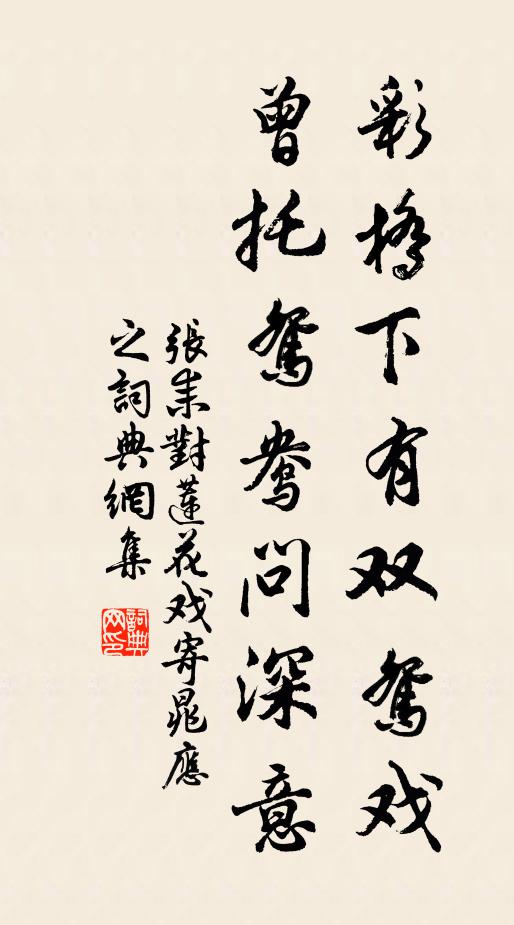 彩橋下有双鸳戏
曾托鸳鸯问深意
張耒對蓮花戏寄晁應
之詞典網集
詞典网印